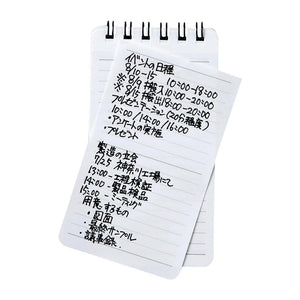 イベントの日程
8/10-15 10:00-18:00
※8/9 搬入10:00-20:00
※8/15 搬出18:00-20:00
プレゼンテーション(20分程度)
10:00/14:00/16:00
・アンケートの実施
・プレゼント
製造の立会
7/25 神奈川工場にて
13:00-工程検証
14:00-製品検品
15:00-ミーティング
用意するもの
・図面
・最終サンプル
・議事録